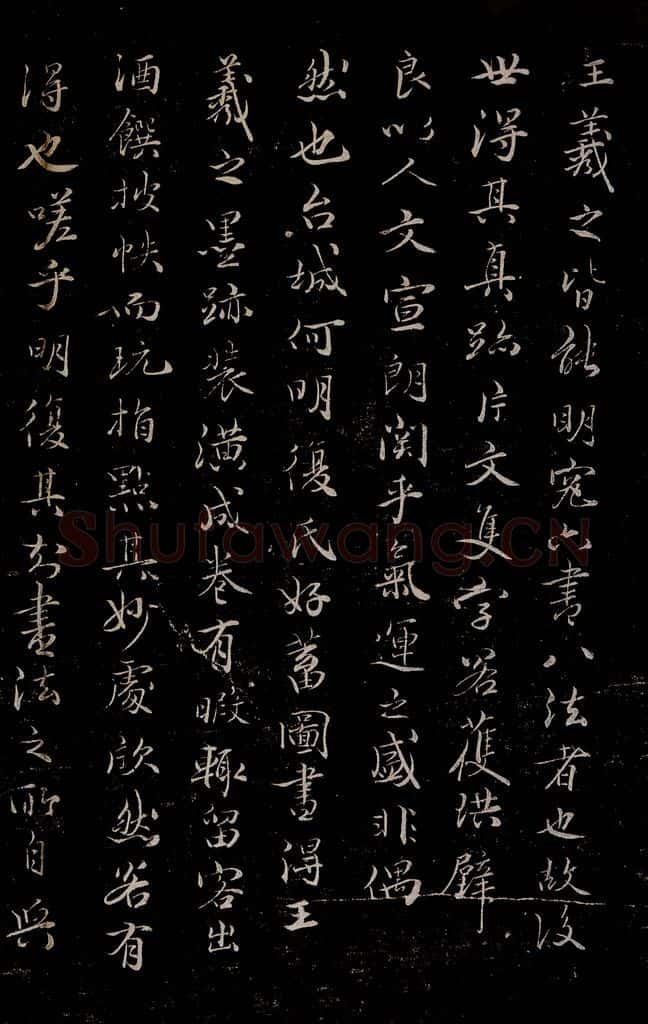 王羲之皆能明究六書八法者也故後
世得其真跡片文隻字若獲珙璧
良以人文宣朗関乎氣運之盛非偶
然也台城何明復氏好蓄圖書得王
羲之墨跡装潢成卷有暇輒留客出
酒饌披帙而玩指點其妙處欣然若有
得也嗟乎明復其知畫法之所自與
Shufawang.CN